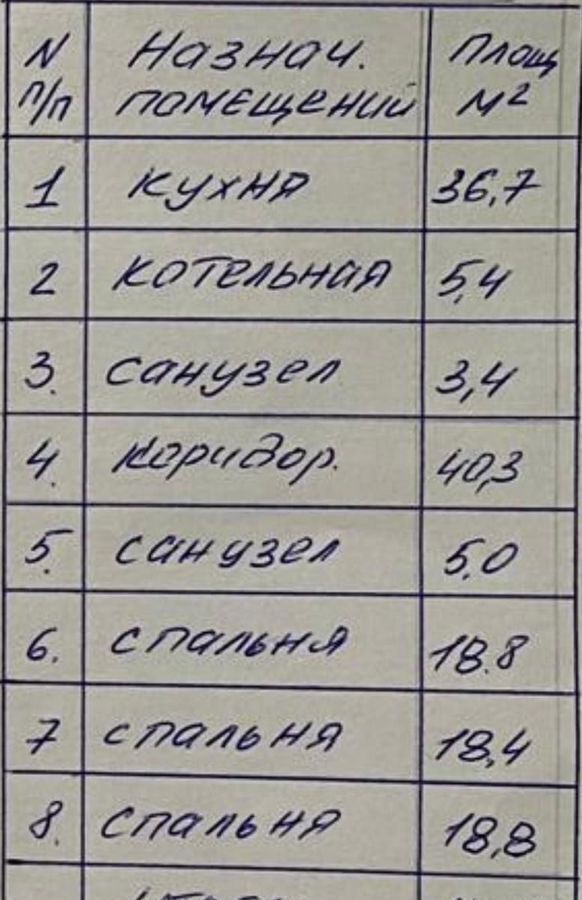 N п/п Назнач. помещений Площ м2
1 кухня 36,7
2 котельная 5,4
3. санузел 3,4
4. коридор. 40,3
5. санузел 5,0
6. спальня 18.8
7 спальня 18,4
8. спальня 18,8